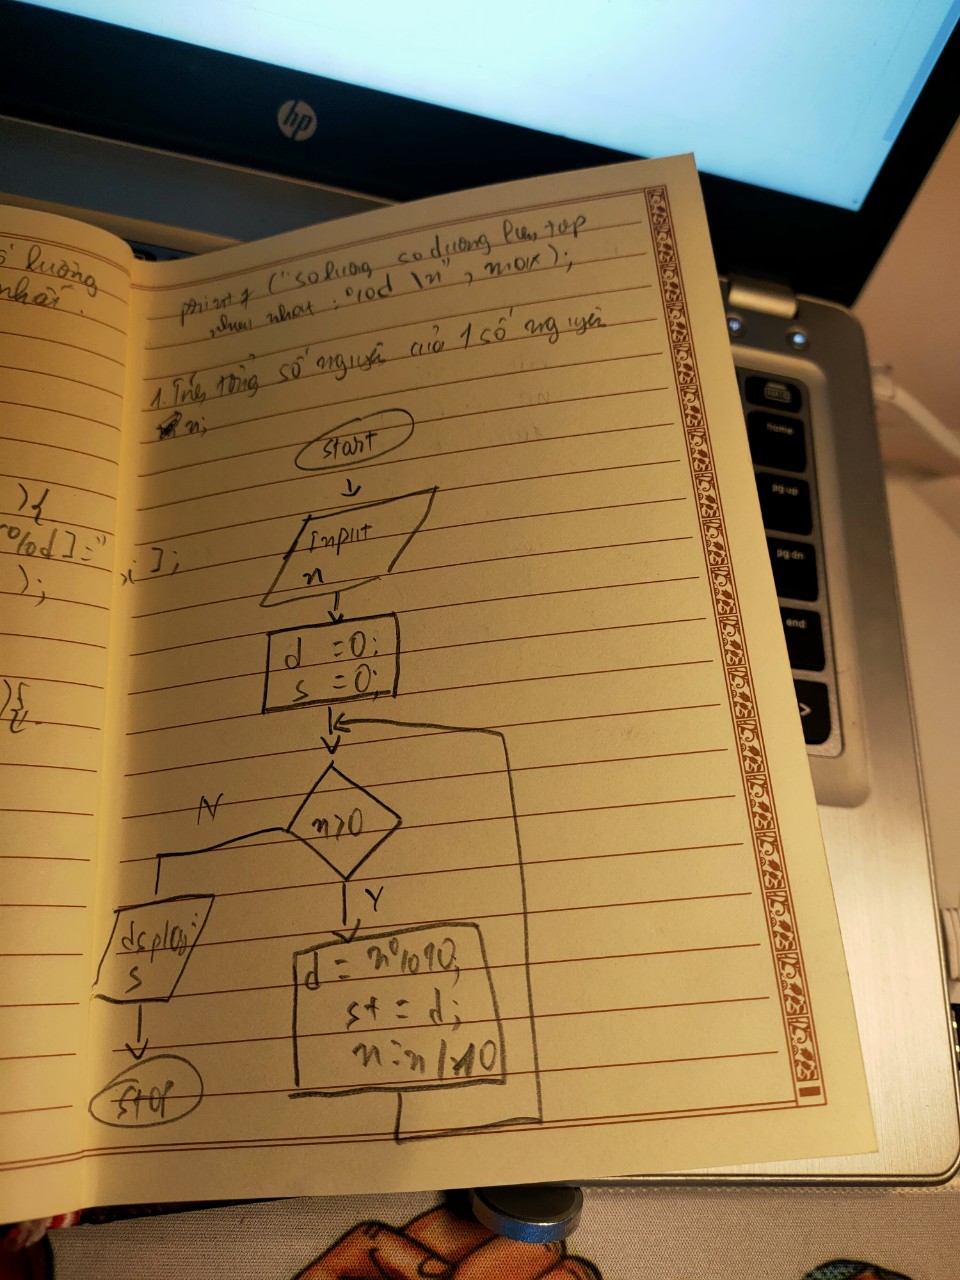 hp
lượng
nhất.
){
%d]="
);
){
printf ("so luong so duong lien tap
nhieu nhat : %d \n", max);
1. Tính tổng số nguyên của 1 số nguyên
n;
i];
start
Input
n
d =0;
s =0;
n>0
N
Y
display
s
d = n%10;
s+ = d;
n=n/10
stop
home
pg up
pg dn
end
>